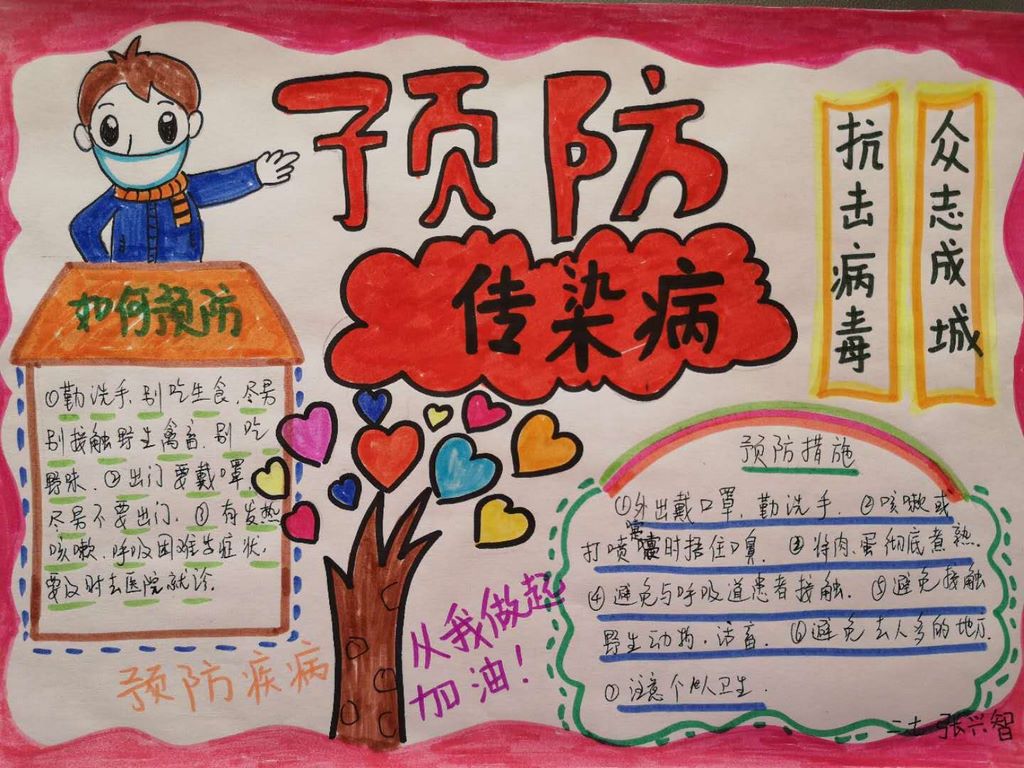 预防
传染病
抗击病毒
众志成城
如何预防
①勤洗手,别吃生食,尽量
别接触野生禽畜,别吃
野味、②出门要戴口罩,
尽量不要出门、③有发热
咳嗽、呼吸困难等症状,
要及时去医院就诊.
预防疾病
从我做起
加油!
预防措施
①外出戴口罩、勤洗手、②咳嗽或
打喷嚏时捂住口鼻、③将肉、蛋彻底煮熟、
④避免与呼吸道患者接触、⑤避免接触
野生动物,活畜、⑥避免去人多的地方、
⑦注意个人卫生、
二七 张兴智